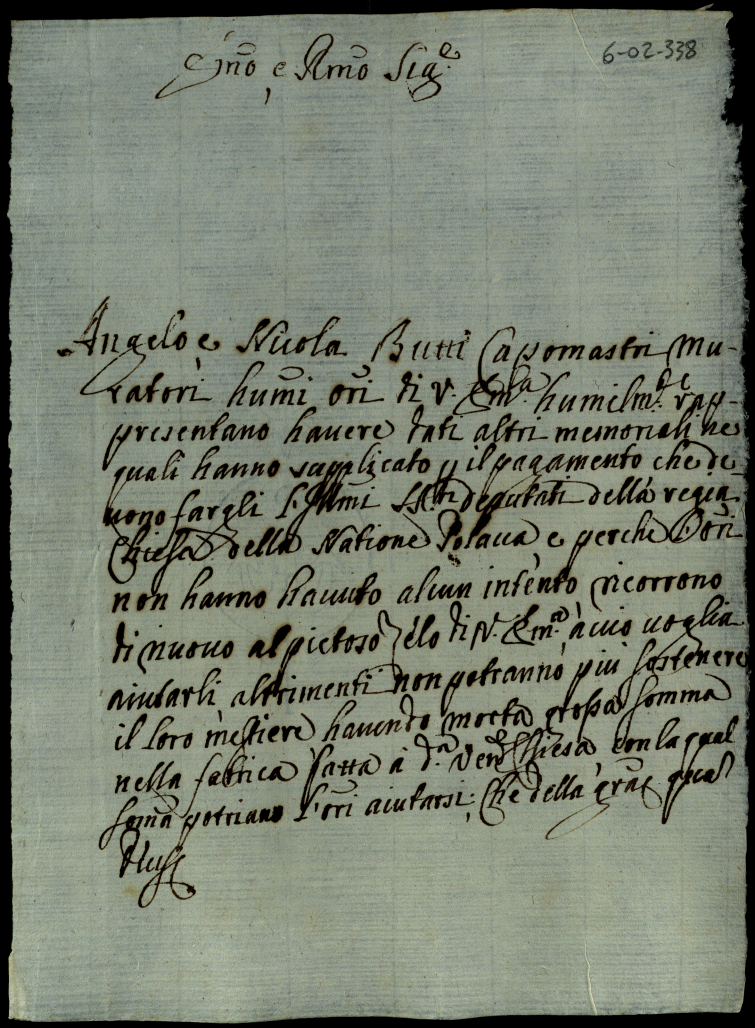 6-02-338
Emo e Rmo Sig.re
Angelo e Nicola Butti Capomastri Mu-
ratori humi ori di V. Em.za humilm.te rap-
presentano havere dati altri memoriali ne
quali hanno supplicato p il pagamento che de
vono fargli l'Illmi SS.ri deputati della regia
Chiesa della Natione Polaca, e perche l'ori
non hanno havuto alcun intento ricorrono
di nuovo al pietoso zelo di V. Em.a acciò voglia
aiutarli, altrimenti non potranno più sostenere
il loro mestiere havendo morta grossa somma
nella fabrica fatta à d.a Ven. Chiesa, con la qual
soma potriano l'ori aiutarsi. Che della gra quas
Deus